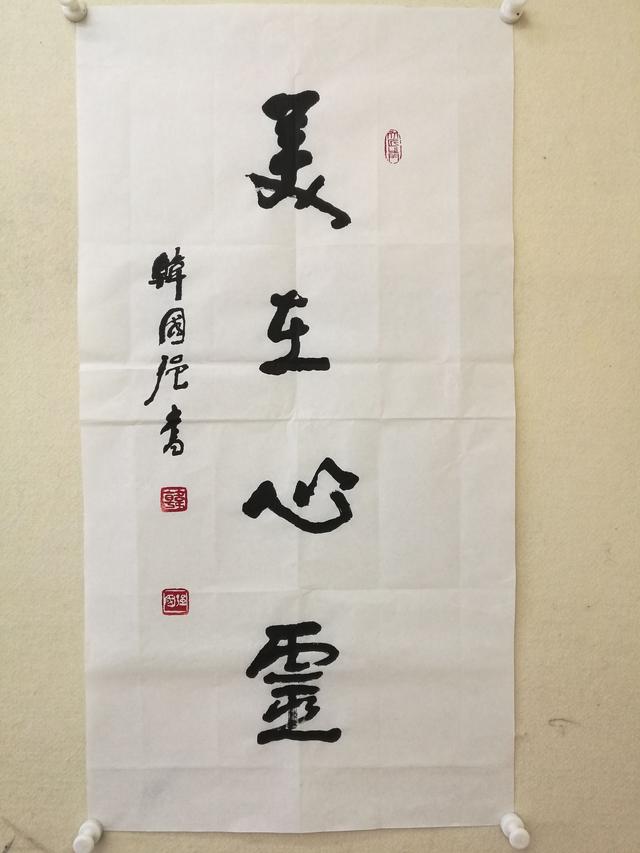 美在心靈
韓國强書